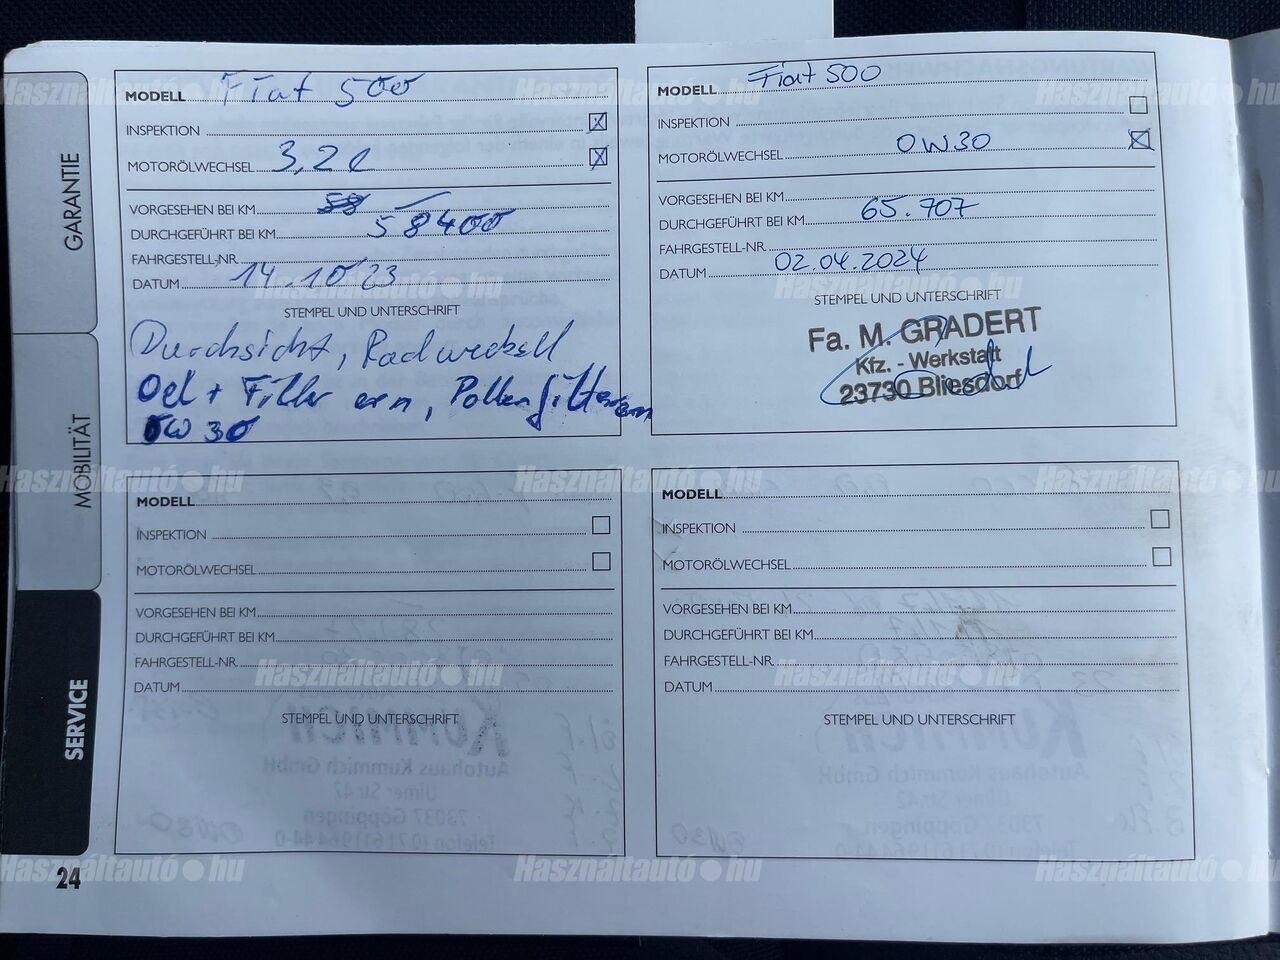 GARANTIE
MOBILITÄT
SERVICE
MODELL Fiat 500
INSPEKTION x
MOTORÖLWECHSEL 3,2 l x
VORGESEHEN BEI KM
DURCHGEFÜHRT BEI KM 58400
FAHRGESTELL-NR.
DATUM 14.10 23
STEMPEL UND UNTERSCHRIFT
Durchsicht, Radwechsell
Oel + Filter ern, Pollenfilter ern
0W30
MODELL Fiat 500
INSPEKTION
MOTORÖLWECHSEL 0W30 x
VORGESEHEN BEI KM
DURCHGEFÜHRT BEI KM 65.707
FAHRGESTELL-NR.
DATUM 02.04.2024
STEMPEL UND UNTERSCHRIFT
Fa. M. GRADERT
Kfz. - Werkstatt
23730 Bliesdorf
MODELL
INSPEKTION
MOTORÖLWECHSEL
VORGESEHEN BEI KM
DURCHGEFÜHRT BEI KM
FAHRGESTELL-NR.
DATUM
STEMPEL UND UNTERSCHRIFT
MODELL
INSPEKTION
MOTORÖLWECHSEL
VORGESEHEN BEI KM
DURCHGEFÜHRT BEI KM
FAHRGESTELL-NR.
DATUM
STEMPEL UND UNTERSCHRIFT
24
Használtautó.hu